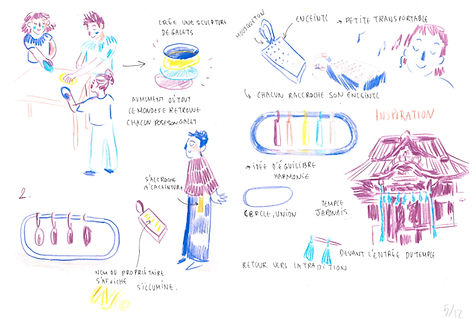 CRÉE UNE SCULPTURE
DE GALETS
AU MOMENT OÙ TOUT
LE MONDE SE RETROUVE
CHACUN POSE SON GALET
MOUSQUETON
ENCEINTE
PETITE TRANSPORTABLE
CHACUN RACCROCHE SON ENCEINTE
INSPIRATION
IDÉE D'ÉQUILIBRE
HARMONIE
CERCLE, UNION
TEMPLE
JAPONAIS
DEVANT L'ENTRÉE DU TEMPLE
RETOUR VERS LA TRADITION
2.
S'ACCROCHE
À LA CEINTURE
NOM DU PROPRIÉTAIRE
S'AFFICHE
S'ILLUMINE.
5/12